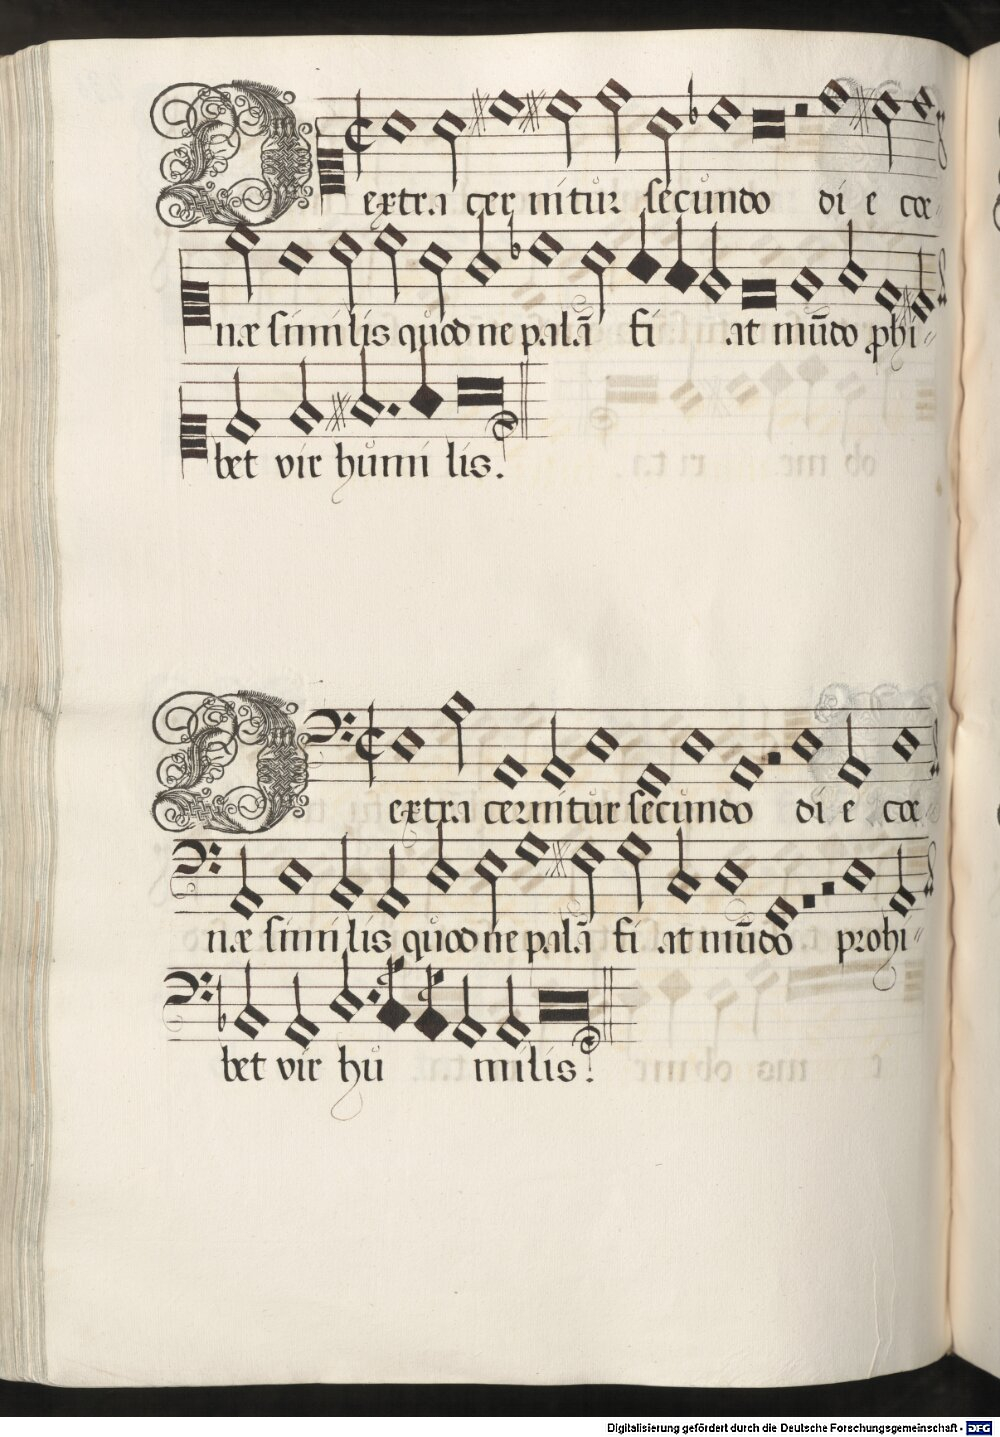 Dextra cernitur secundo di e cœ
næ similis quod ne palā fi at mūdo prohi
bet vir humi lis.
Dextra cernitur secundo di e cœ
næ similis quod ne palā fi at mūdo prohi
bet vir hu milis.
Digitalisierung gefördert durch die Deutsche Forschungsgemeinschaft - DFG